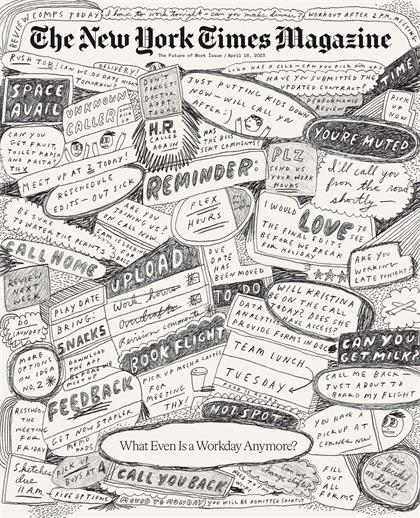 REVIEW COMPS TODAY
I have to work tonight - can you make dinner?
WORKOUT AFTER 2 P.M. MEETING
The New York Times Magazine
The Future of Work Issue / April 16, 2023
RUSH JOB!
DELIVERY!
CAN WE DO DATE NIGHT
TOMORROW?
LUNA HAS A COLD - CAN YOU PICK HER UP?
HAVE YOU SUBMITTED THE
UPDATED CONTRACT?
PERFORMANCE
REVIEW
TIME
SPACE
AVAIL
UNKNOWN
CALLER
DON'T
FORGET
DOCTOR
H.R.
CALLED
AGAIN
JUST PUTTING KIDS DOWN
NOW - WILL CALL YOU
AFTER!
PICK
ME
NOW
CAN YOU
GET FRUIT,
TOILET PAPER,
AND PASTA?
THX
HAS THE BOSS
SENT COMMENTS?
YOU'RE MUTED
MEET UP at 2 TODAY!
PLZ
SEND US
YOUR WORK
HOURS
I'll call you
from the road
shortly —
RESCHEDULE
EDITS - OUT SICK
REMINDER:
ARE YOU
JOINING US?
ON CALL NOW
FLEX
HOURS
I WOULD
LOVE TO
SEE
THE FINAL EDITS
BEFORE WE BREAK
FOR HOLIDAY
BE SURE
TO WATER THE PLANTS
CALL HOME
DUE
DATE
HAS
BEEN MOVED
ARE YOU
WORKING
LATE TONIGHT?
REVIEW
NEXT
WEEK
UPLOAD
TO DO
PLAY DATE
BRING:
SNACKS
Work hours
Overdrafts
Revision comments
WILL KRISTINA
BE ON THE CALL
TODAY? DOES SHE
HAVE ACCESS?
DATA
ANALYTICS
PROVIDE FORMS IN DOC
DO
LAUNDRY
MORE
OPTIONS
ON IDEA
NO. 2*
DOWNLOAD
THE APP
BEFORE WE
MEET UP
BOOK FLIGHT
TEAM LUNCH
TUESDAY
CAN YOU
GET MILK?
FEEDBACK
PICK UP
MOCHA LATTES
FOR
MEETING
THX!
CALL ME BACK -
JUST ABOUT TO
BOARD MY FLIGHT
RESCHED.
THE
MEETING
FOR
FRIDAY
GET NEW STAPLER
MEMO
PADS
HOT SPOT?
YOU HAVE A
PICKUP AT
CORNER NOW
What Even Is a Workday Anymore?
Sketches
due
11 A.M.
PICK UP
BOYS AT 4
FIVE OPTIONS
CALL YOU BACK
MOVED TO MONDAY
YOU WILL BE ADMITTED SHORTLY
FILL
OUT
ALL
FORMS